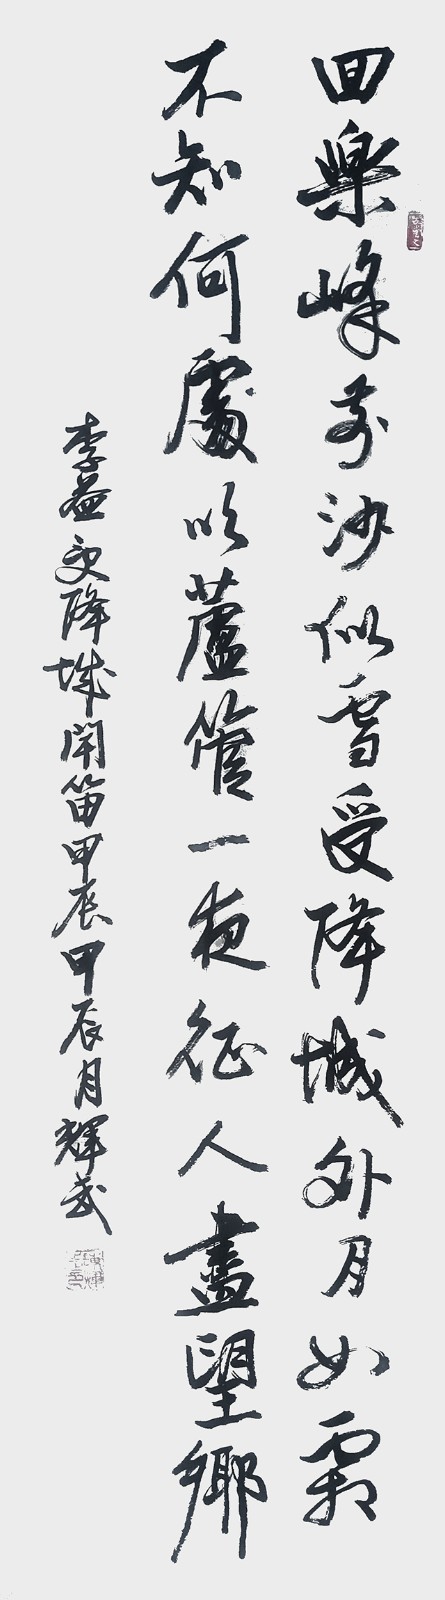 回樂峰前沙似雪受降城外月如霜
不知何處吹蘆管一夜征人盡望鄉
李益受降城聞笛甲辰甲辰月輝武